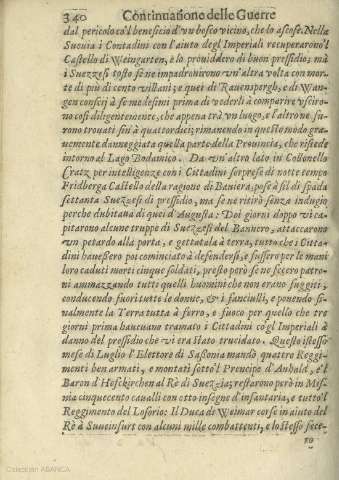 340 Continuatione delle Guerre
dal pericolo co'l beneficio d'vn bosco vicino, che lo ascose. Nella
Sueuia i Contadini con l'aiuto degl Imperiali recuperarono'l
Castello di Weingarten, e lo prouidero di buon presidio; mà
i Suezzesi tosto se ne impadronirono vn'altra volta con mor-
te di più di cento villani; e quei di Rauenspergh, e di Wan-
gen consci j à se medesimi prima di vederli à comparire vsciro-
no così diligentemente, che appena trà vn luogo, e l'altro ne fu-
rono trouati sin à quattordici; rimanendo in questo modo gra-
uemente danneggiata quella parte della Prouincia, che risiede
intorno al Lago Bodamico. Da vn'altro lato in Collonello
Cratz per intelligenze con i Cittadini sorprese di notte tempo
Fridberga Castello della ragione di Bauiera, pose à fil di spada
settanta Suezzesi di presidio, ma se ne ritirò senza indugio
perche dubitana di quei d'Augusta: Doi giorni doppo vi ca-
pitarono alcune truppe di Suezzesi del Baniero, attaccarono
vn petardo alla porta, e gettatola à terra, tutto che i Citta-
dini hauessero poi cominciato à defendersi, e fussero per le mani
loro caduti morti cinque soldati, presto però se ne fecero patro-
ni ammazzando tutti quelli huomini che non erano fuggiti,
conducendo fuori tutte le donne, & i fanciulli, e ponendo fi-
nalmente la Terra tutta à ferro, e fuoco per quello che tre
giorni prima haueuano tramato i Cittadini cogl Imperiali à
danno del pressidio che vi era stato trucidato. Questo istesso
mese di Luglio l'Elettore di Sassonia mandò quattro Reggi-
menti ben armati, e montati sotto'l Prencipe d'Anhald, e'l
Baron d'Hofkirchen al Rè di Suezzia; restarono però in Mis-
nia cinquecento caualli con otto insegne d'infantaria, e tutto'l
Reggimento del Losorio: Il Duca di Weimar corse in aiuto del
Rè à Suueinfurt con alcuni mille combattenti, e lo stesso fece-
ro
Colección ABANCA